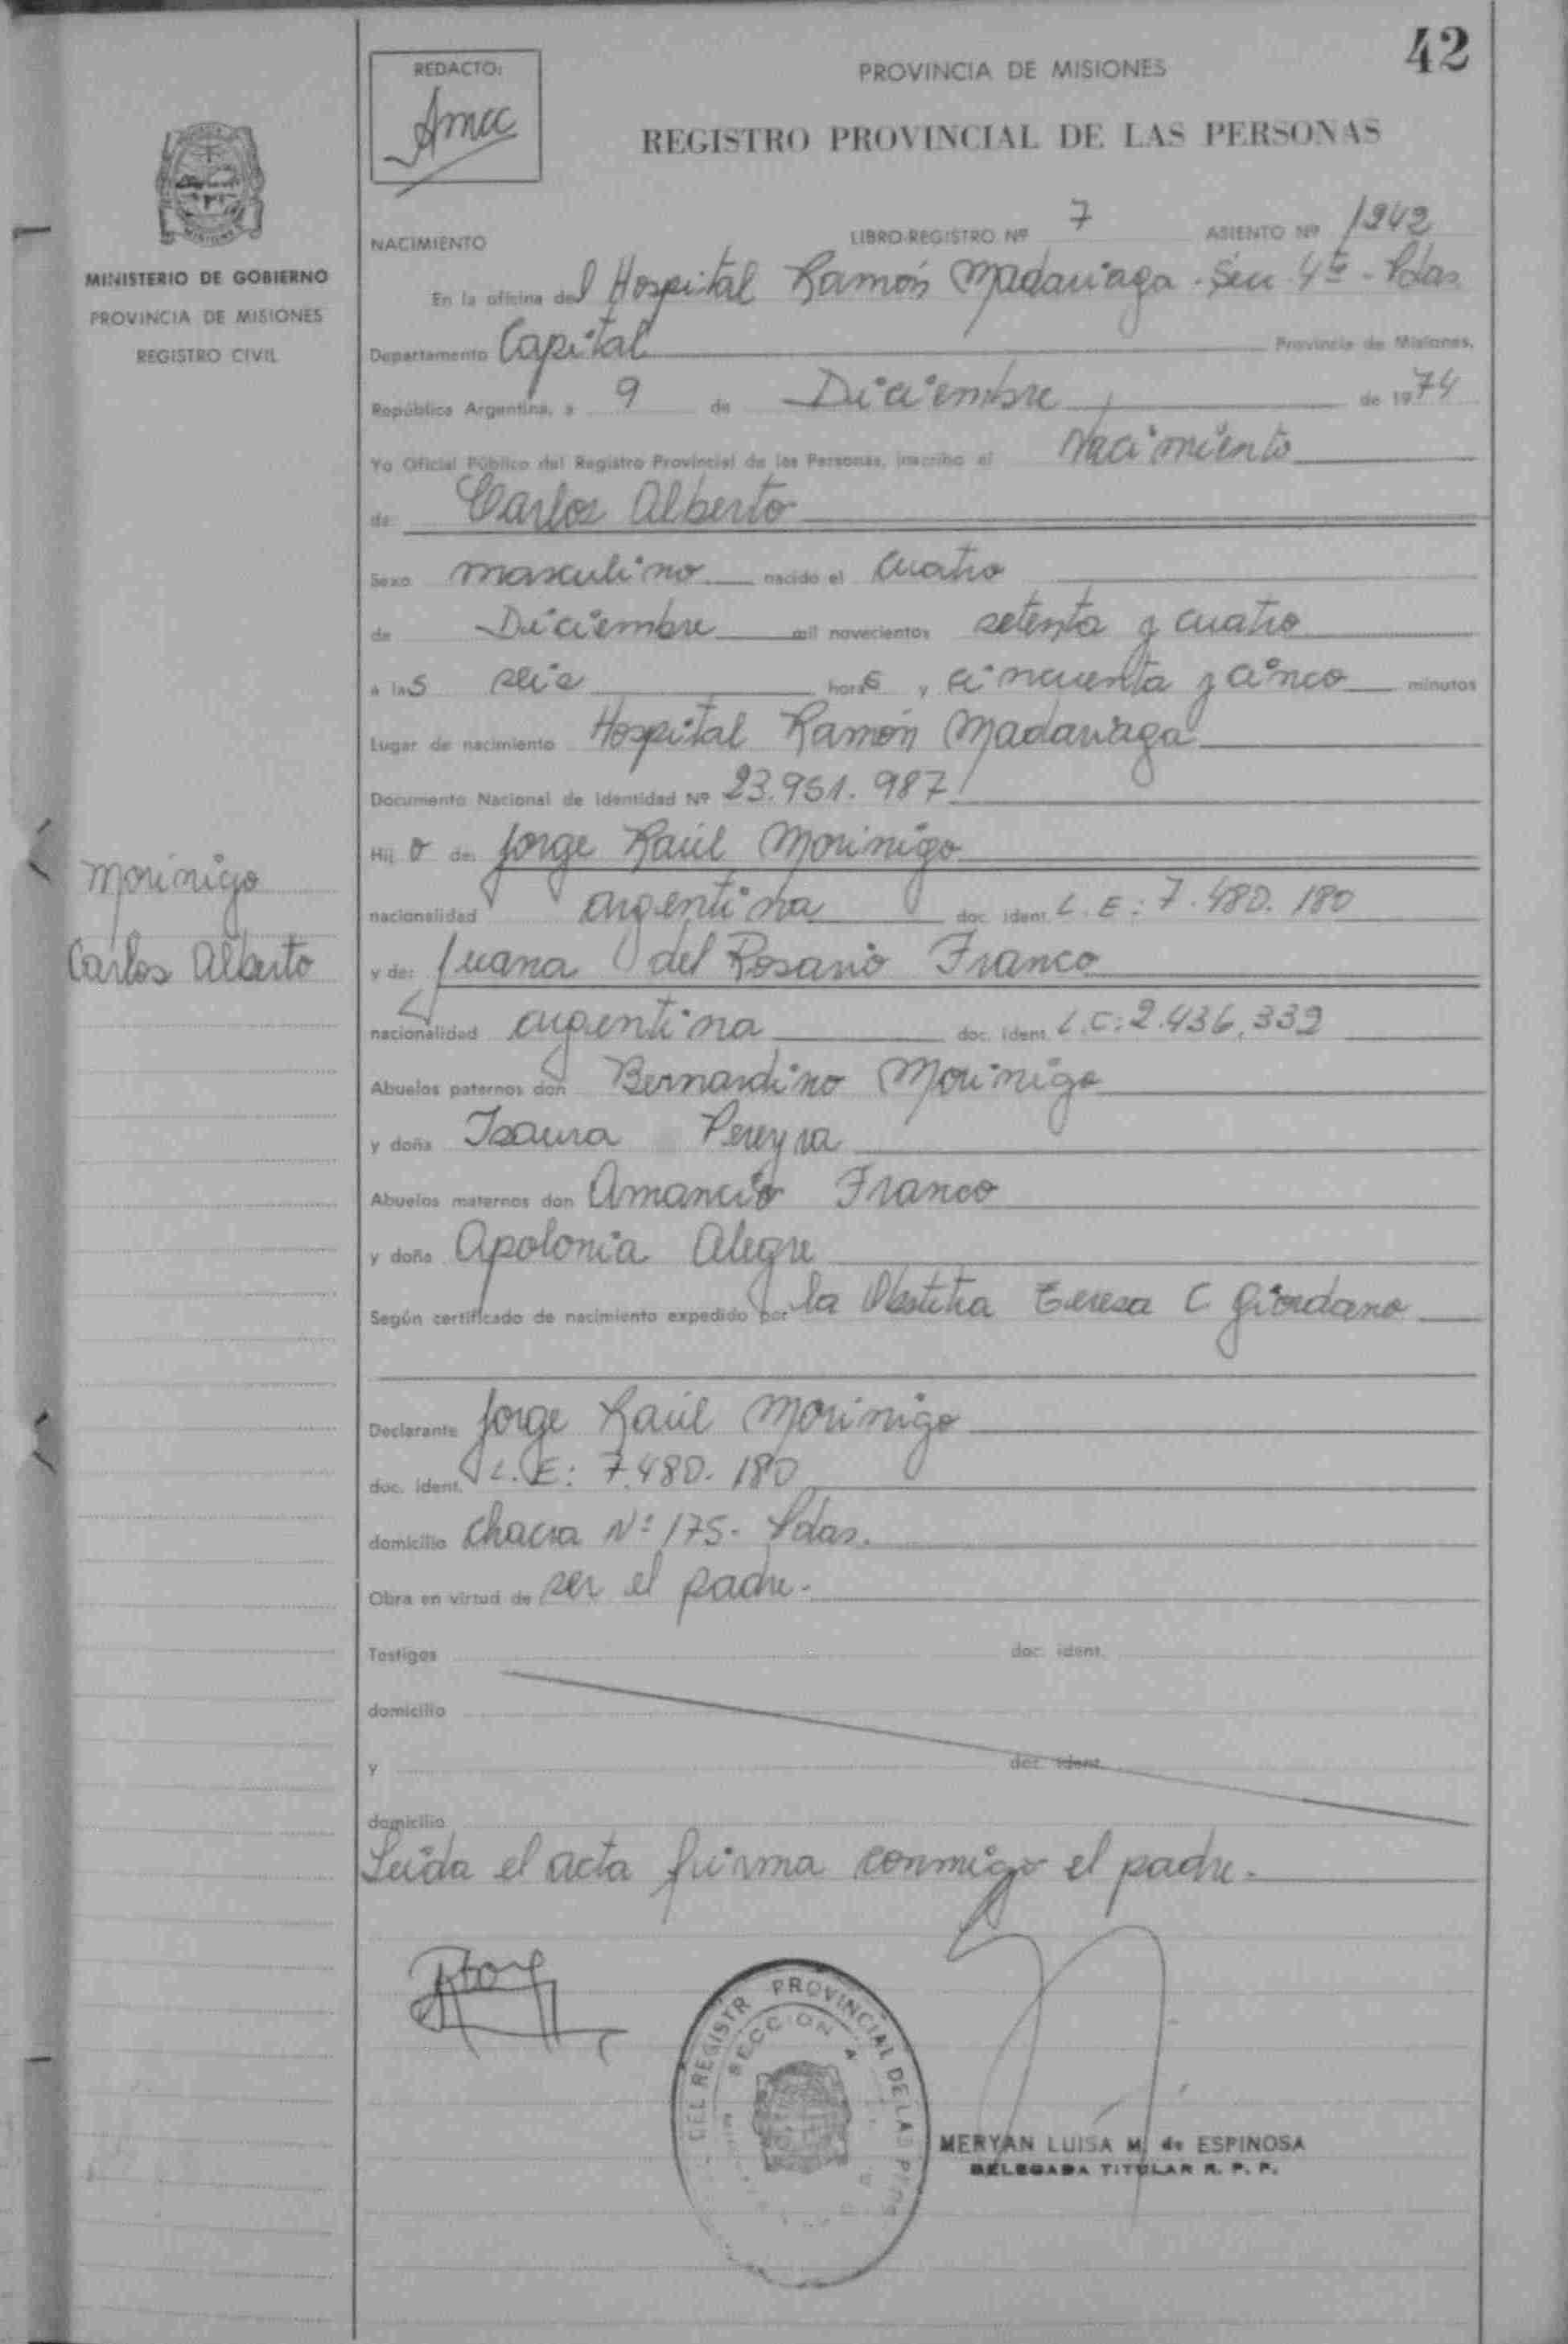 42
REDACTO:
Amcc
PROVINCIA DE MISIONES
REGISTRO PROVINCIAL DE LAS PERSONAS
MINISTERIO DE GOBIERNO
PROVINCIA DE MISIONES
REGISTRO CIVIL
NACIMIENTO LIBRO-REGISTRO Nº 7 ASIENTO Nº 1242
En la oficina del Hospital Ramón Madariaga - Sec 4ta - Pdas
Departamento Capital Provincia de Misiones,
República Argentina, a 9 de Diciembre de 1974
Yo Oficial Público del Registro Provincial de las Personas, inscribo el Nacimiento
de: Carlos Alberto
Sexo masculino nacido el cuatro
de Diciembre mil novecientos setenta y cuatro
a las seis horas y cincuenta y cinco minutos
Lugar de nacimiento Hospital Ramón Madariaga
Documento Nacional de Identidad Nº 23.951.987
Hijo de: Jorge Raúl Morinigo
nacionalidad argentina doc. ident. L.E: 7.480.180
Morinigo
Carlos Alberto
y de: Juana del Rosario Franco
nacionalidad argentina doc. ident. L.C: 2.436.339
Abuelos paternos don Bernardino Morinigo
y doña Isaura Pereyra
Abuelos maternos don Amancio Franco
y doña Apolonia Alegre
Según certificado de nacimiento expedido por la Obstetra Teresa C Giordano
Declarante Jorge Raúl Morinigo
doc. ident. L.E: 7.480.180
domicilio chacra Nº 175- Pdas.
Obra en virtud de ser el padre.
Testigos doc. ident.
domicilio
y doc. ident.
domicilio
Leida el acta firma conmigo el padre.
DEL REGISTR PROVINCIAL DE LAS P
SECCION 4
MERYAN LUISA M. de ESPINOSA
DELEGADA TITULAR R. P. P.